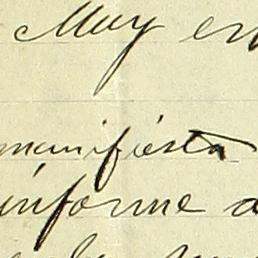 Muy en
manifiesta
informe a